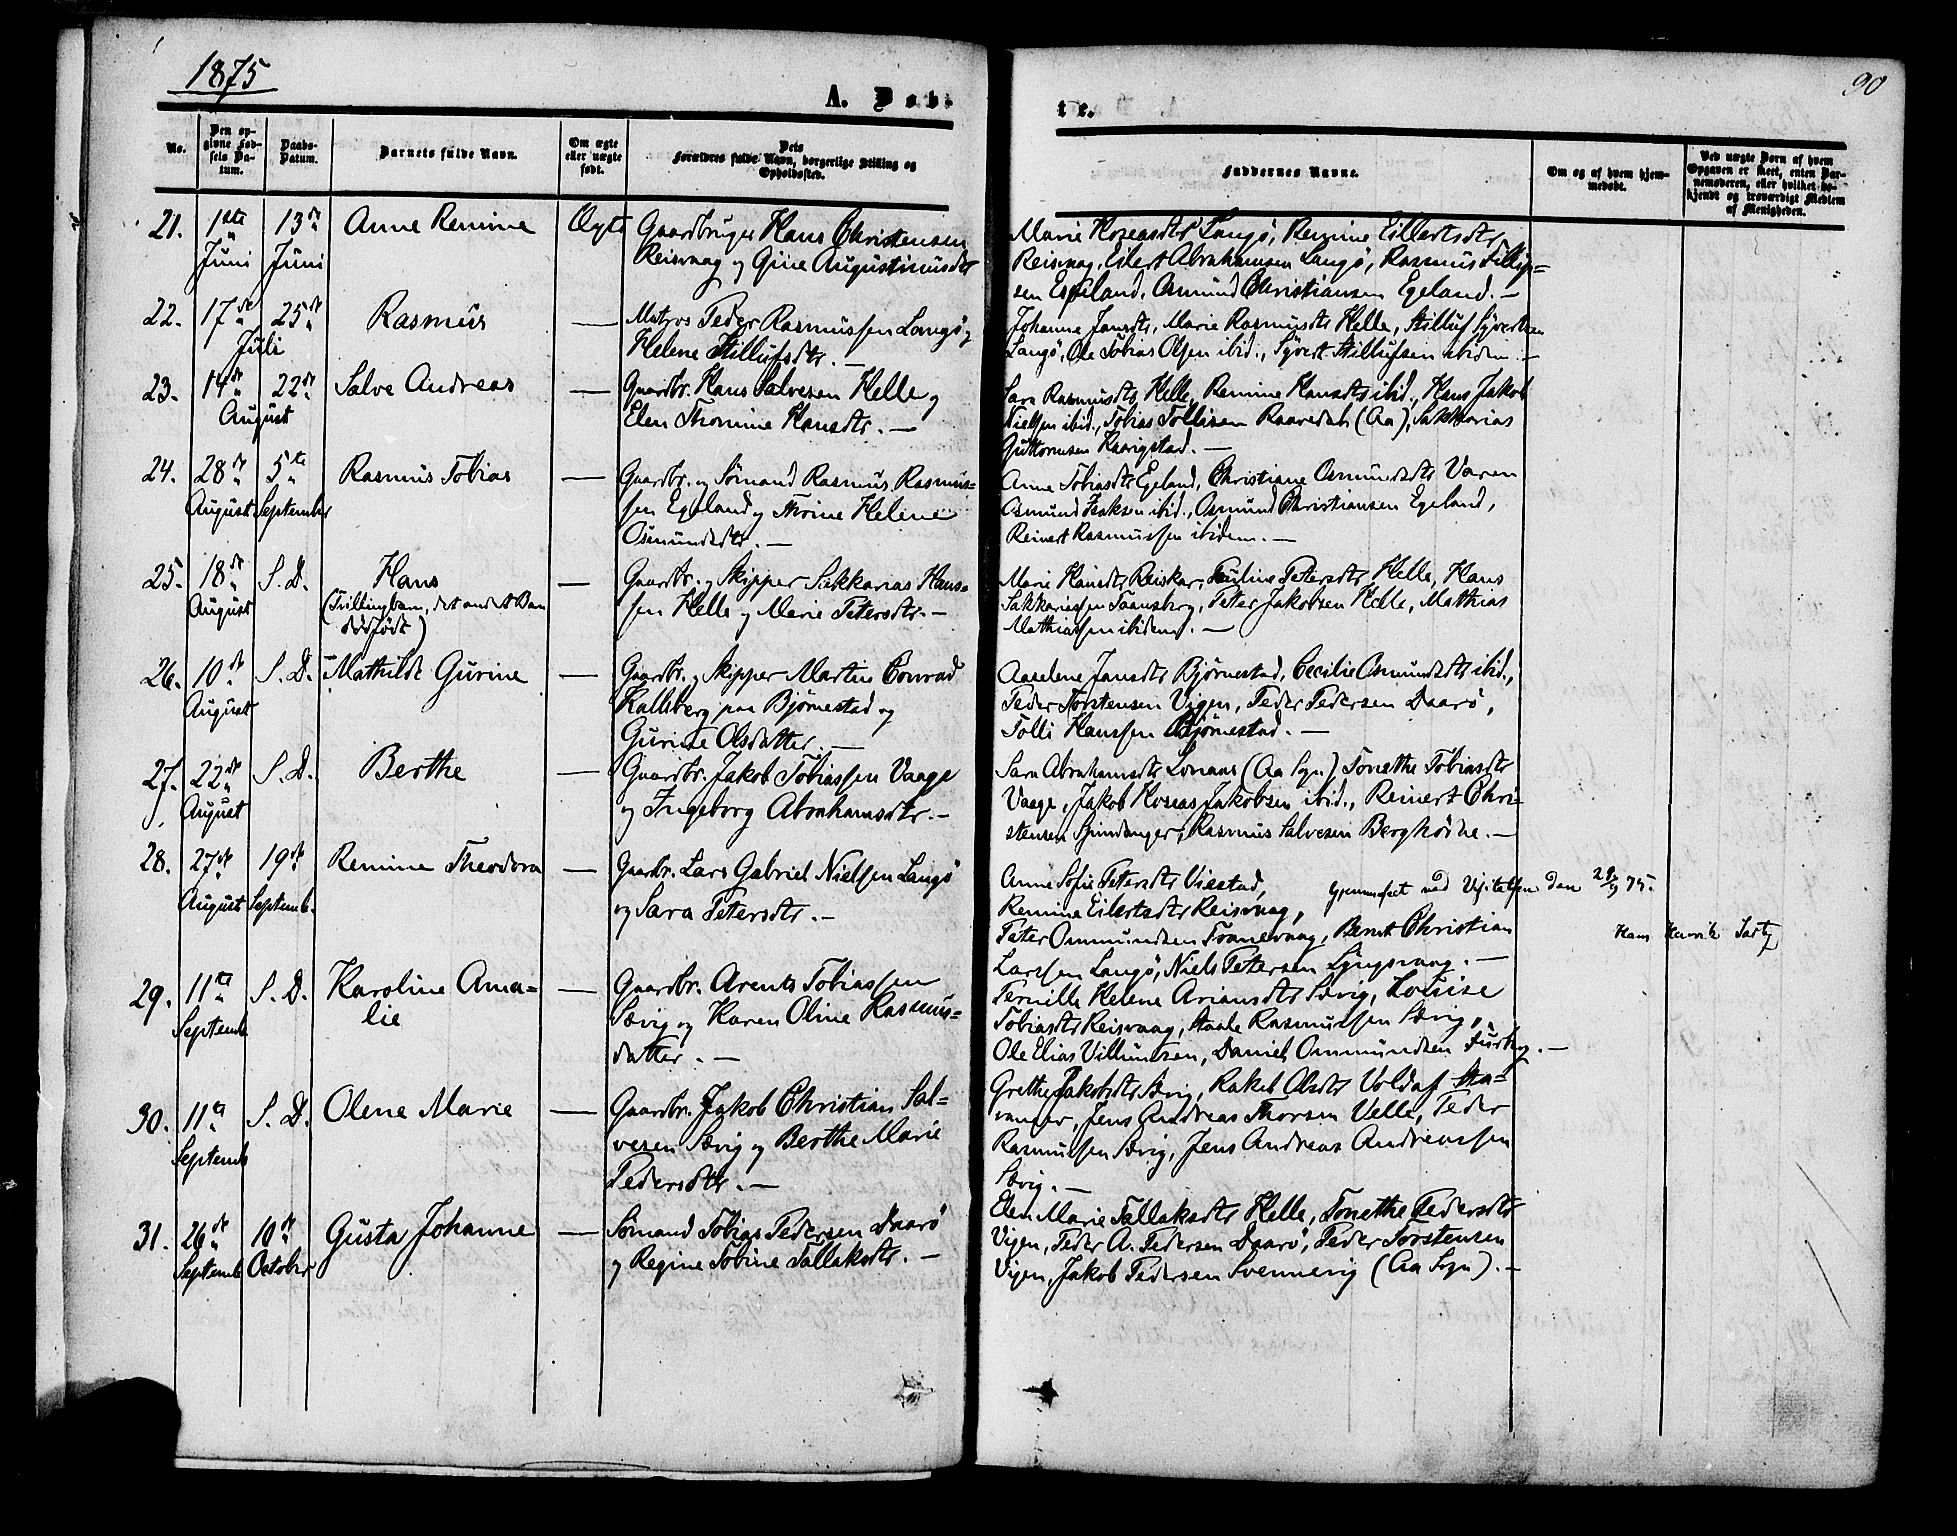 1875
90
A. Døb-
te.
No.
Den op-
givne Fød-
sels Da-
tum.
Daabs-
Datum.
Barnets fulde Navn.
Om ægte
eller uægte
født.
Dets
Forældres fulde Navn, borgerlige Stilling og
Opholdssted.
Faddernes Navne.
Om og af hvem hjem-
medøbt.
Ved uægte Børn af hvem
Opgaven er skeet, enten Bar-
nemoderen, eller hvilket be-
kjendt og troværdigt Medlem
af Menigheden.
21. 1ste Juni 13de Juni Anne Remine Ægte
Gaardbruger Hans Christensen
Reisvaag og Gine Augustinusdtr
Marie Hoseasdtr Langö, Remine Eillertsdtr
Reisvaag, Eilert Abrahamsen Langö, Rasmus Fillip=
sen Egeland, Osmund Christiansen Egeland. —
22. 17de Juli 25de Rasmus —
Matros Peder Rasmussen Langö og
Helene Stillufsdtr. —
Johanne Jansdtr, Marie Rasmusdtr Helle, Stilluf Syvertsen
Langö, Ole Tobias Olsen ibid., Syvert Stillufsen ibidem. —
23. 14de August 22de Salve Andreas —
Gaardbr. Hans Salvesen Helle og
Elen Thomine Hansdtr. —
Sara Rasmusdtr Helle, Remine Hansdtr ibid., Hans Jakob
Nielsen ibid., Tobias Tollisen Raaredab (Aa), Sakkarias
Guttormsen Haarigstad. —
24. 28de August 5te September Rasmus Tobias —
Gaardbr. og Sömand Rasmus Rasmus=
sen Egeland og Thrine Helene
Osmundsdtr. —
Anne Tobiasdtr Egeland, Christiane Osmundsdtr Varen
Osmund Isaksen ibid., Osmund Christiansen Egeland,
Reinert Rasmussen ibidem. —
25. 18de August S. D. Hans —
(Trillingbarn, det andet Barn
dødfödt)
Gaardbr. og Skipper Sakkarias Hans=
sen Helle og Marie Petersdtr. —
Marie Hansdtr Reiskar, Pauline Petersdtr Helle, Hans
Sakkariassen Taansberg, Peter Jakobsen Helle, Mathias
Mathiassen ibidem. —
26. 10de August S. D. Mathilde Gurine —
Gaardbr. og Skipper Martin Conrad
Kalleberg paa Björnestad og
Gurine Olsdatter. —
Aaselene Jansdtr Björnestad, Cecilie Osmundsdtr ibid.,
Peder Torstensen Vigen, Peder Pedersen Daarö,
Tolli Hanssen Björnestad. —
27. 22de August S. D. Berthe —
Gaardbr. Jakob Tobiassen Vaage
og Ingeborg Abrahamsdtr. —
Sara Abrahamsdtr Lonans (Aa Sogn) Tonette Tobiasdtr
Vaage, Jakob Hoseas Jakobsen ibid., Reinert Chri-
stensen Spindsanger, Rasmus Salvesen Berghödne. —
28. 27de August 19de Septemb. Remine Theodora —
Gaardbr. Lars Gabriel Nielsen Langö
og Sara Petersdtr. —
Anne Sofie Petersdtr Viestad,
Remine Eilertsdtr Reisvaag,
Peter Ommundsen Tranevaag, Bernt Christian
Larssen Langö, Niels Petersen Lyngsvaag. —
Gjennemseet ved Visitatsen den 28/9 75.
Hans Henrik
29. 11te Septemb S. D. Karoline Ama=
lie —
Gaardbr. Arents Tobiassen
Sævig og Karen Oline Rasmus=
datter. —
Pernille Helene Ariansdtr Sævig, Louise
Tobiasdtr Reisvaag, Staale Rasmussen Sævig,
Ole Elias Villumsen, Daniel Ommundsen Furberg. —
30. 11te Septemb S. D. Olene Marie —
Gaardbr. Jakob Christian Sal=
vesen Sævig og Berthe Marie
Pedersdtr. —
Grethe Jakobsdtr Sævig, Rakel Olsdtr Voldaf Sta=
vanger, Jens Andreas Thorsen Velle, Peder
Rasmussen Sævig, Jens Andreas Andreassen
Sævig. —
31. 26de Septemb 10de October Gusta Johanne —
Sömand Tobias Pedersen Daarö
og Regine Tobine Tallaksdtr. —
Elen Marie Tallaksdtr Helle, Tonette Pedersdtr
Vigen, Peder A. Pedersen Daarö, Peder Torstensen
Vigen, Jakob Pedersen Svennevig (Aa Sogn). —